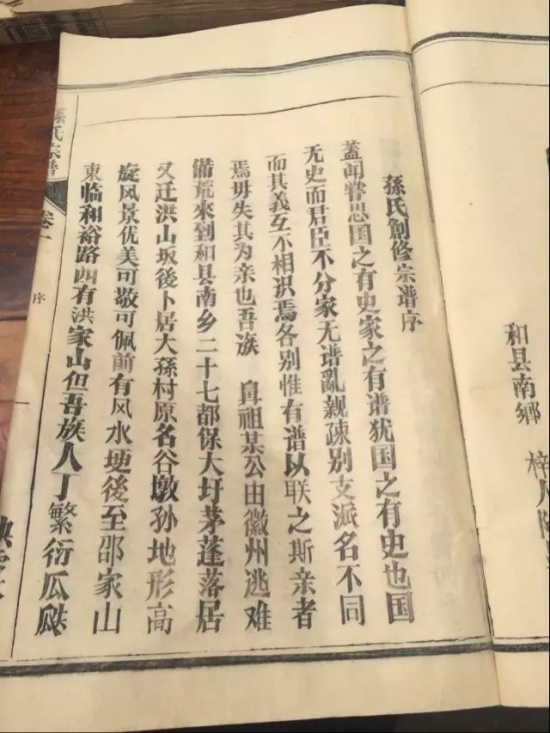 和县南鄉
孫氏創修宗谱序
蓋闻嘗思国之有史家之有谱犹国之有史也国
无史而君臣不分家无谱亂親疎别支派名不同
而其義互不相识焉各别惟有谱以联之斯亲者
焉毋失其为亲也吾族 鼻祖某公由徽州逃难
備荒來到和县南乡二十七都保大圩茅蓬落居
又迁洪山坂後卜居大孫村原名谷墩孙地形高
旋风景优美可敬可佩前有风水埂後至邵家山
東临和裕路西有洪家山但吾族人丁繁衍瓜瓞
孫氏宗譜 卷一 序